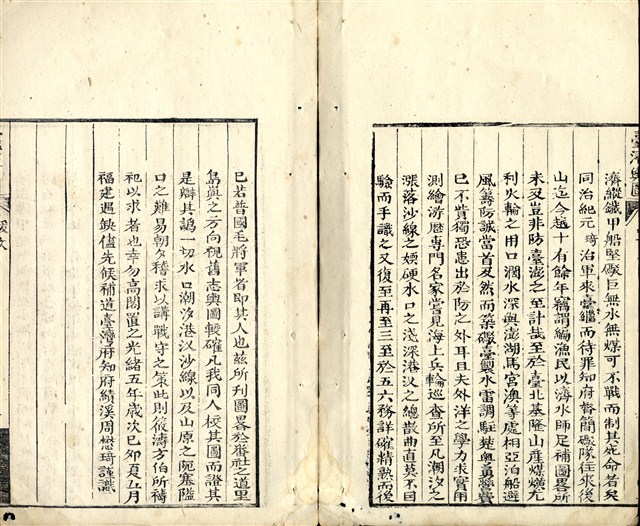 濟縱鐵甲船堅礮巨無水無煤可不戰而制其死命者矣
同治紀元琦治軍來臺繼而待罪知府督簡礮隊往來後
山迄今越十有餘年竊謂編漁民以濟水師足補圖畧所
未及豈非防臺澎之至計哉至於臺北基隆山產煤磺尤
利火輪之用口濶水深與澎湖馬宮澳等處相亞泊船避
風籌防誠當首及然而築礮臺製水雷調駐楚奥勇營費
已不貲獨恐患出於防之外耳且夫外洋之學力求實用
測繪游歷專門名家嘗見海上兵輪巡查所至凡潮汐之
漲落沙線之㛹硬水口之淺深港汊之總散曲直莫不目
驗而手識之又復至再至三至於五六務詳確精熟而後
已若普國毛將軍者即其人也茲所刊圖畧於番社之道里
島嶼之方向視舊志輿圖較確凡我同人按其圖而證其
是辯其譌一切水口潮汐港汊沙線以及山原之阨塞隘
口之難易朝夕稽求以講戰守之策此則筱濤方伯所禱
祀以求者也幸勿高閣置之光緒五年歲次己卯夏五月
福建遇缺儘先候補道臺灣府知府績溪周懋琦謹識